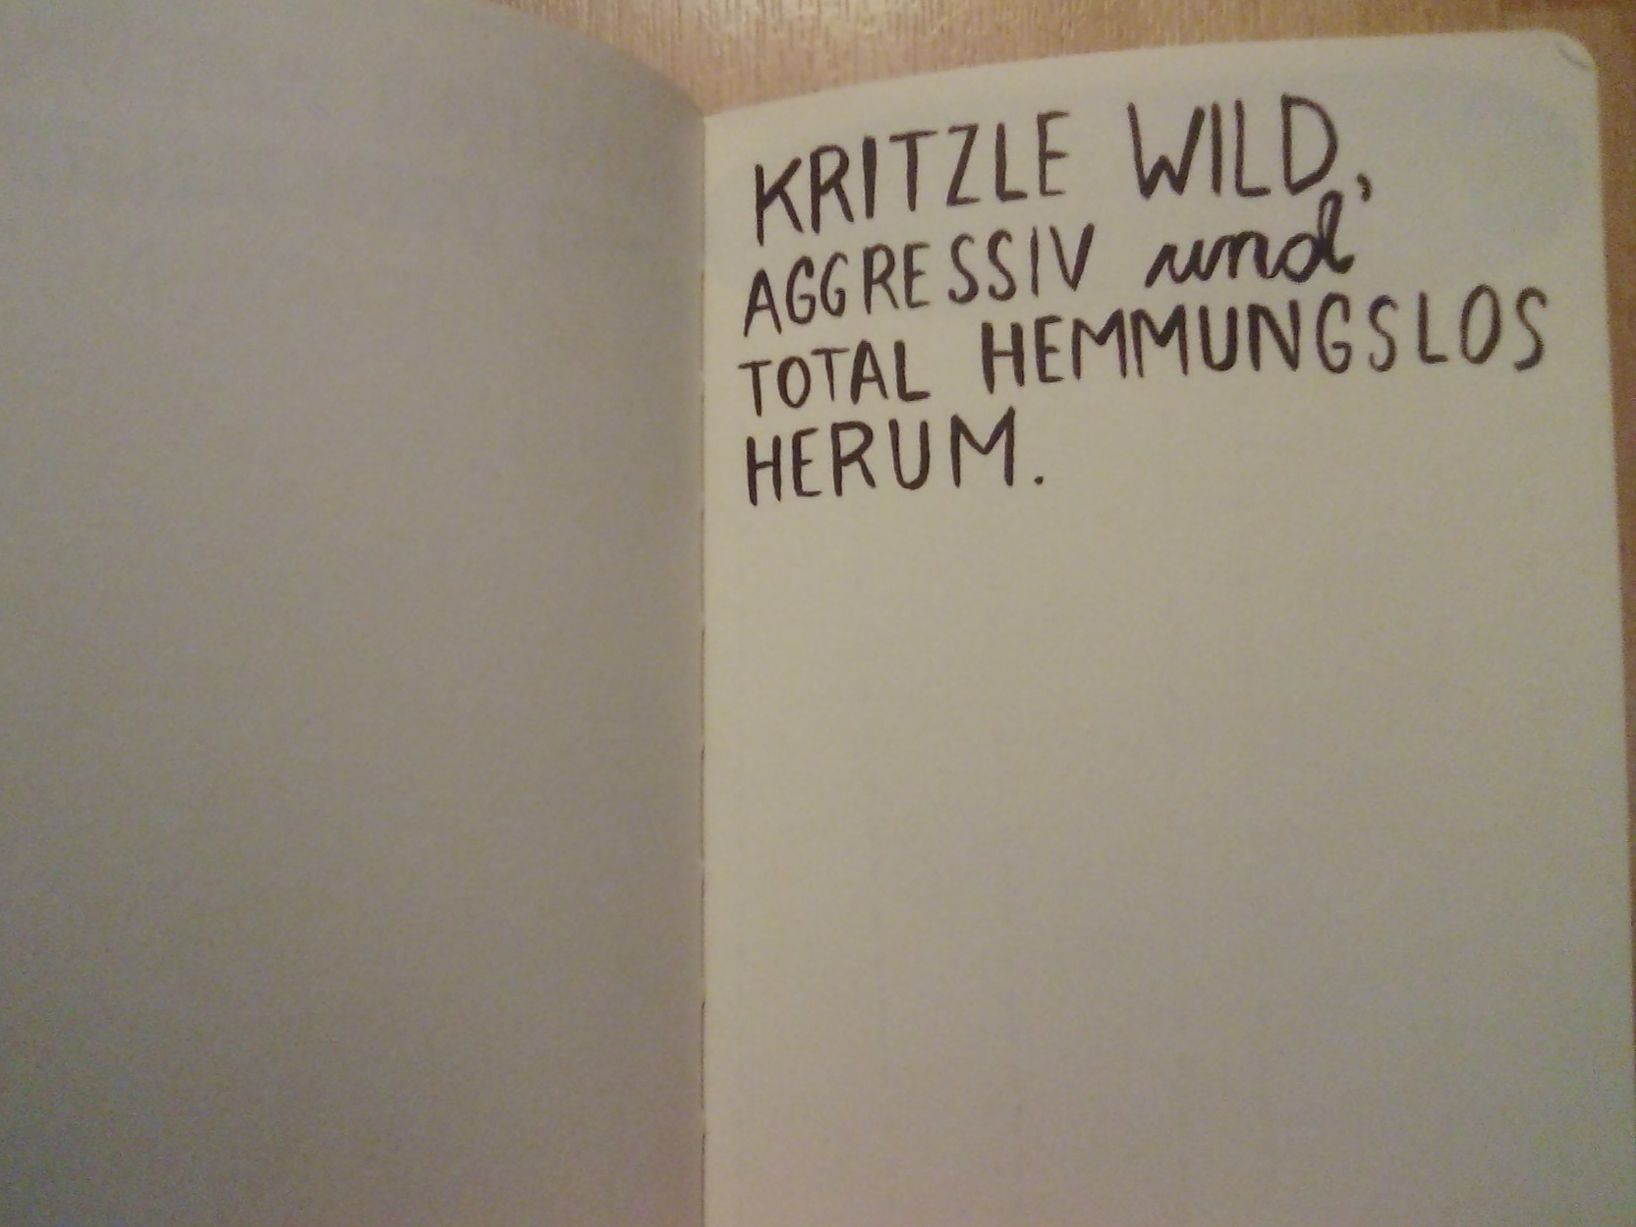 KRITZLE WILD,
AGGRESSIV und
TOTAL HEMMUNGSLOS
HERUM.